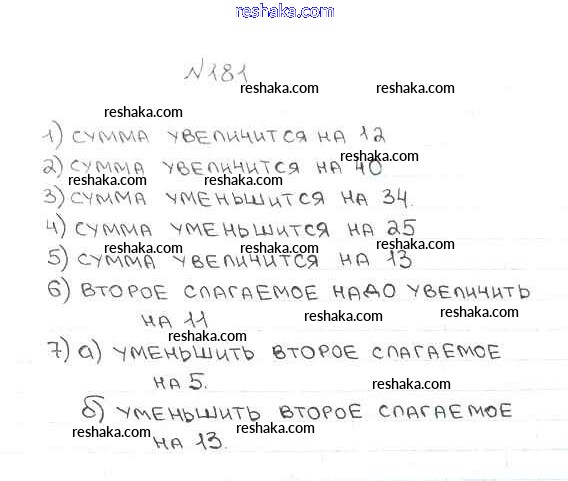 reshaka.com
№181
reshaka.com reshaka.com
reshaka.com
1) СУММА УВЕЛИЧИТСЯ НА 12
reshaka.com
2) СУММА УВЕЛИЧИТСЯ НА 40
reshaka.com reshaka.com
3) СУММА УМЕНЬШИТСЯ НА 34.
4) СУММА УМЕНЬШИТСЯ НА 25
reshaka.com reshaka.com reshaka.com
5) СУММА УВЕЛИЧИТСЯ НА 13
6) ВТОРОЕ СЛАГАЕМОЕ НАДО УВЕЛИЧИТЬ
НА 11
reshaka.com reshaka.com
7) а) УМЕНЬШИТЬ ВТОРОЕ СЛАГАЕМОЕ
НА 5.
reshaka.com
б) УМЕНЬШИТЬ ВТОРОЕ СЛАГАЕМОЕ
reshaka.com reshaka.com
НА 13.